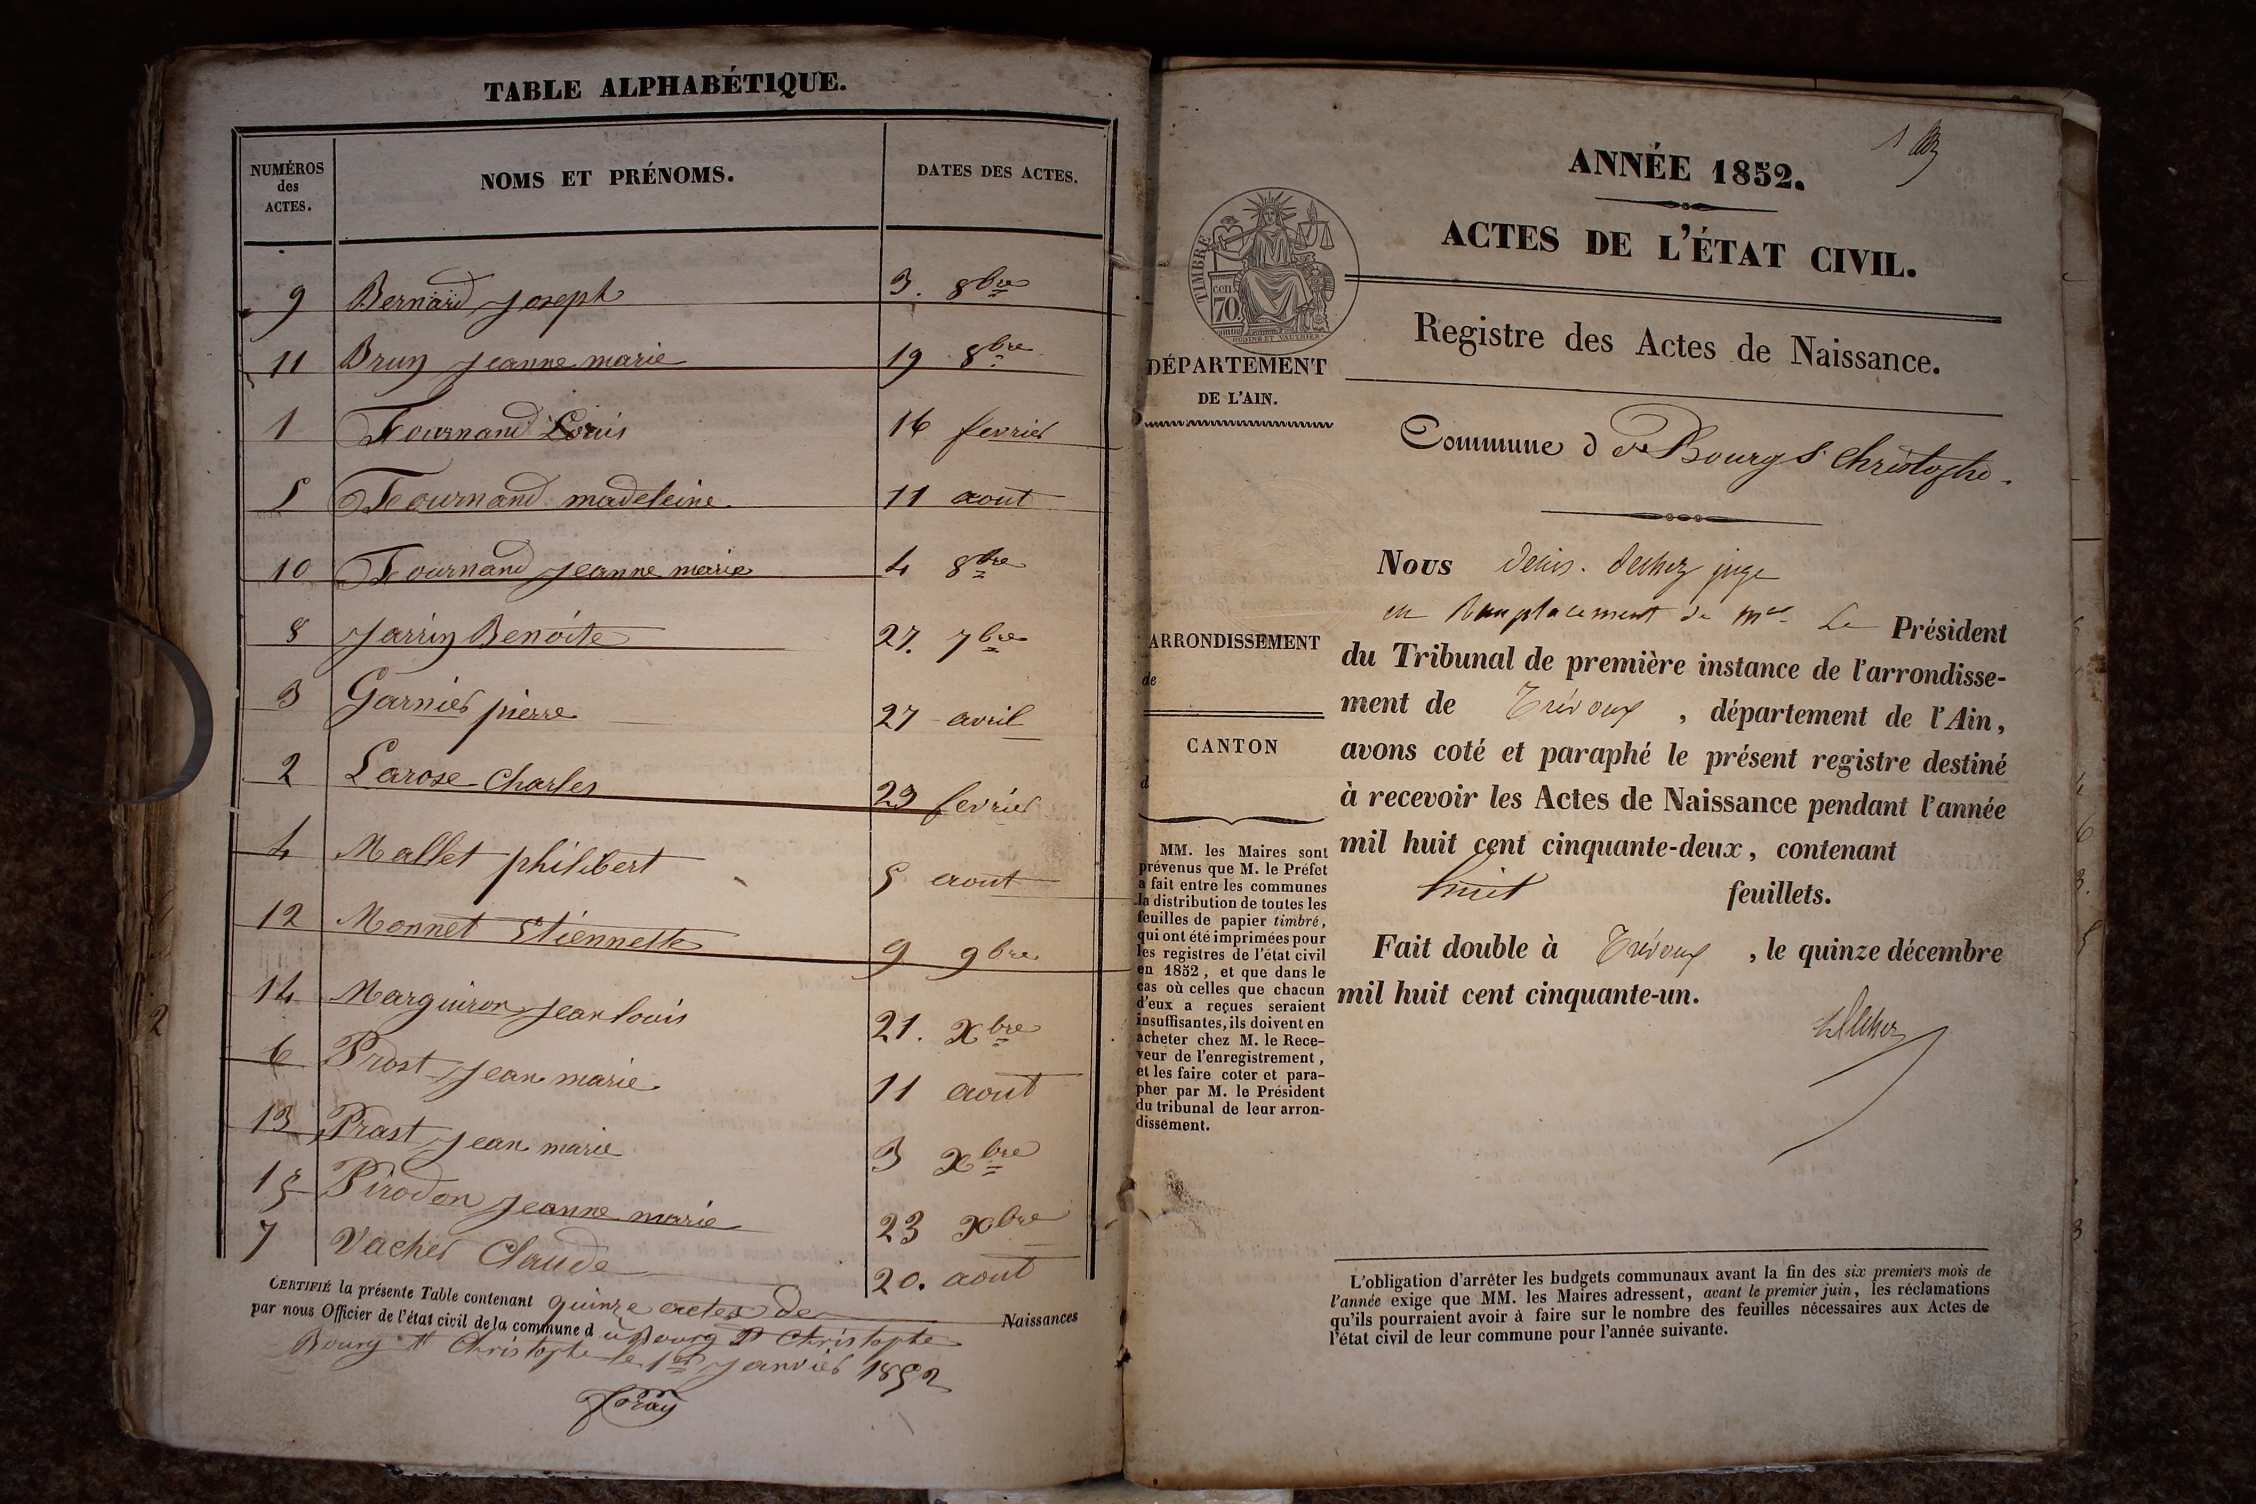 TABLE ALPHABÉTIQUE.
NUMÉROS
des
ACTES.
NOMS ET PRÉNOMS.
DATES DES ACTES.
9 Bernard Joseph 3. 8bre
11 Brun Jeanne marie 19 8bre
1 Fournand Louis 16 fevrier
5 Fournand madeleine 11 aout
10 Fournand Jeanne marie 4 8bre
8 Jarrin Benoite 27. 7bre
3 Garnier pierre 27 avril
2 Larose Charles 23 fevrier
4 Mallet philibert 5 aout
12 Monnet Etiennette 9 9bre
14 Marguiron Jean louis 21. Xbre
6 Prost Jean marie 11 aout
13 Prast Jean marie 3 Xbre
15 Pirodon Jeanne marie 23 Xbre
7 Vacher Claude 20. aout
CERTIFIÉ la présente Table contenant quinze actes de Naissances
par nous Officier de l'état civil de la commune d u Bourg St Christophe
Bourg St Christophe le 1er Janvier 1852
ANNÉE 1852.
ACTES DE L'ÉTAT CIVIL.
TIMBRE
cen.
70.
Registre des Actes de Naissance.
DÉPARTEMENT
DE L'AIN.
Commune d e Bourg St Christophe.
ARRONDISSEMENT
de
CANTON
d
MM. les Maires sont
prévenus que M. le Préfet
a fait entre les communes
la distribution de toutes les
feuilles de papier timbré,
qui ont été imprimées pour
les registres de l'état civil
en 1852, et que dans le
cas où celles que chacun
d'eux a reçues seraient
insuffisantes, ils doivent en
acheter chez M. le Rece-
veur de l'enregistrement,
et les faire coter et para-
pher par M. le Président
du tribunal de leur arron-
dissement.
Nous juge
en Remplacement de mr Le Président
du Tribunal de première instance de l'arrondisse-
ment de Trévoux, département de l'Ain,
avons coté et paraphé le présent registre destiné
à recevoir les Actes de Naissance pendant l'année
mil huit cent cinquante-deux, contenant
huit feuillets.
Fait double à Trévoux, le quinze décembre
mil huit cent cinquante-un.
L'obligation d'arrêter les budgets communaux avant la fin des six premiers mois de
l'année exige que MM. les Maires adressent, avant le premier juin, les réclamations
qu'ils pourraient avoir à faire sur le nombre des feuilles nécessaires aux Actes de
l'état civil de leur commune pour l'année suivante.